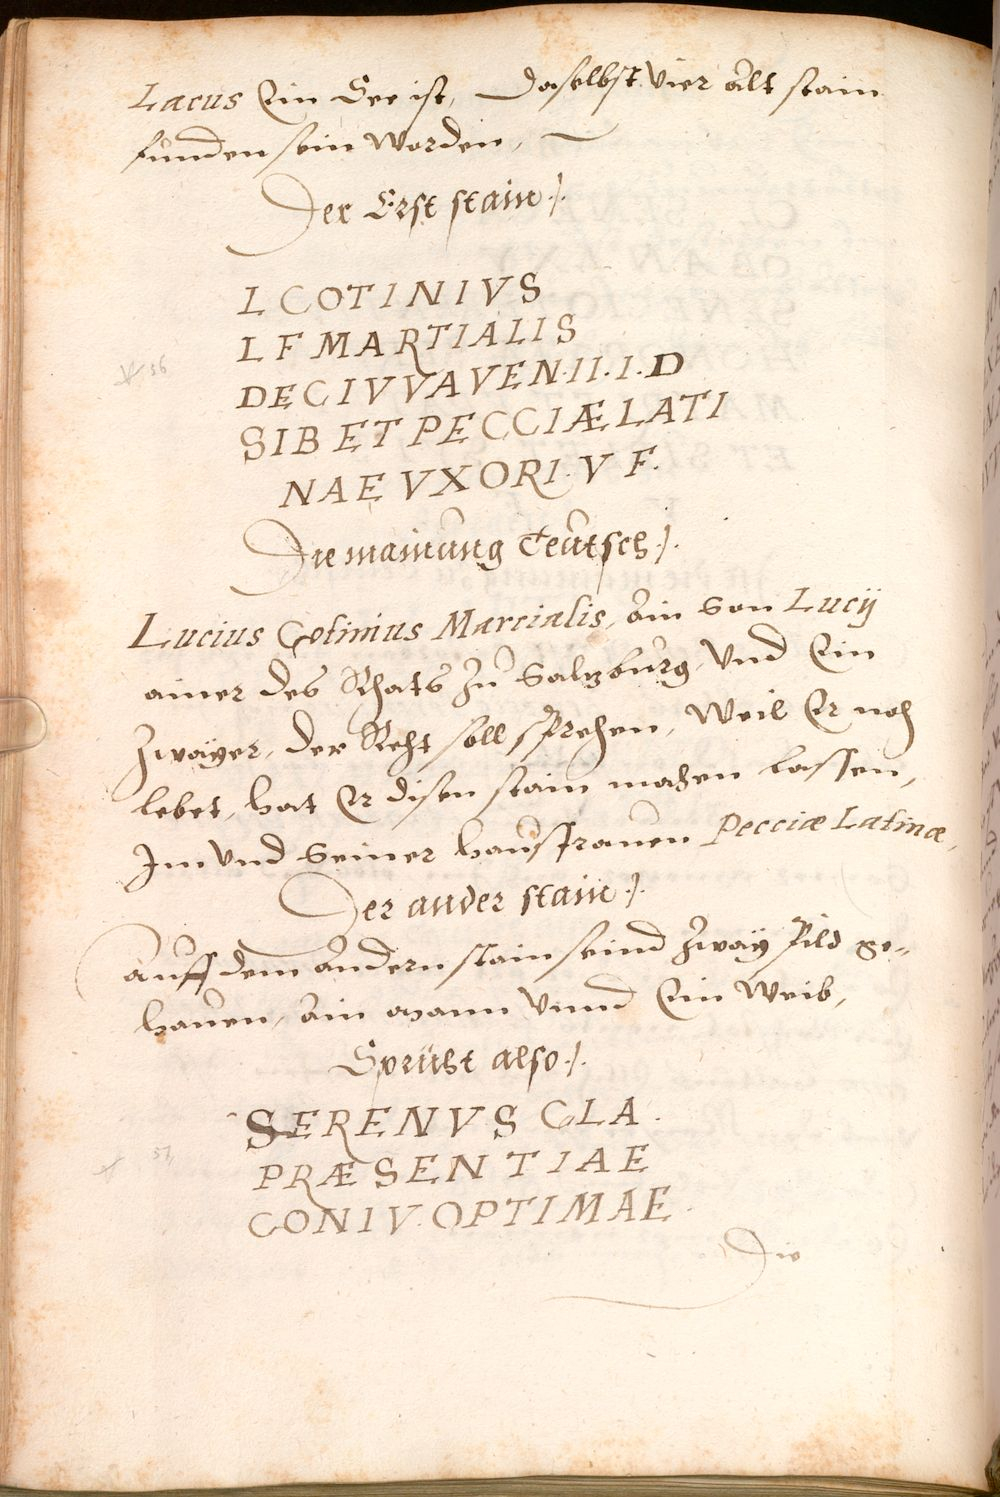 Lacus Ein See ist, Daselbst Vier Alt stain
funden sein worden,
Der Erst stain
L COTINIVS
L F MARTIALIS
DEC IVVAVEN·II·I·D
SIB ET PECCIÆ LATI
NAE VXORI·V F·
Die mainung Teutsch
Lucius Cotinius Marcialis, Ain Son Lucij
ainer des Rhats zu Saltzburg, Und Ein
Zwayer, der Reht soll sprehen, Weil Er noh
lebet, hat Er disen stain mahen lassen,
Im Und Seiner hausfrauen Pecciæ Latinæ,
Der ander stain
Auff dem Andern stain seind Zway Pild ge-
hauen, Ain Mann Vnnd Ein Weib,
Spricht also
SERENVS CLA·
PRÆSENTIAE
CONIV·OPTIMAE·
Die